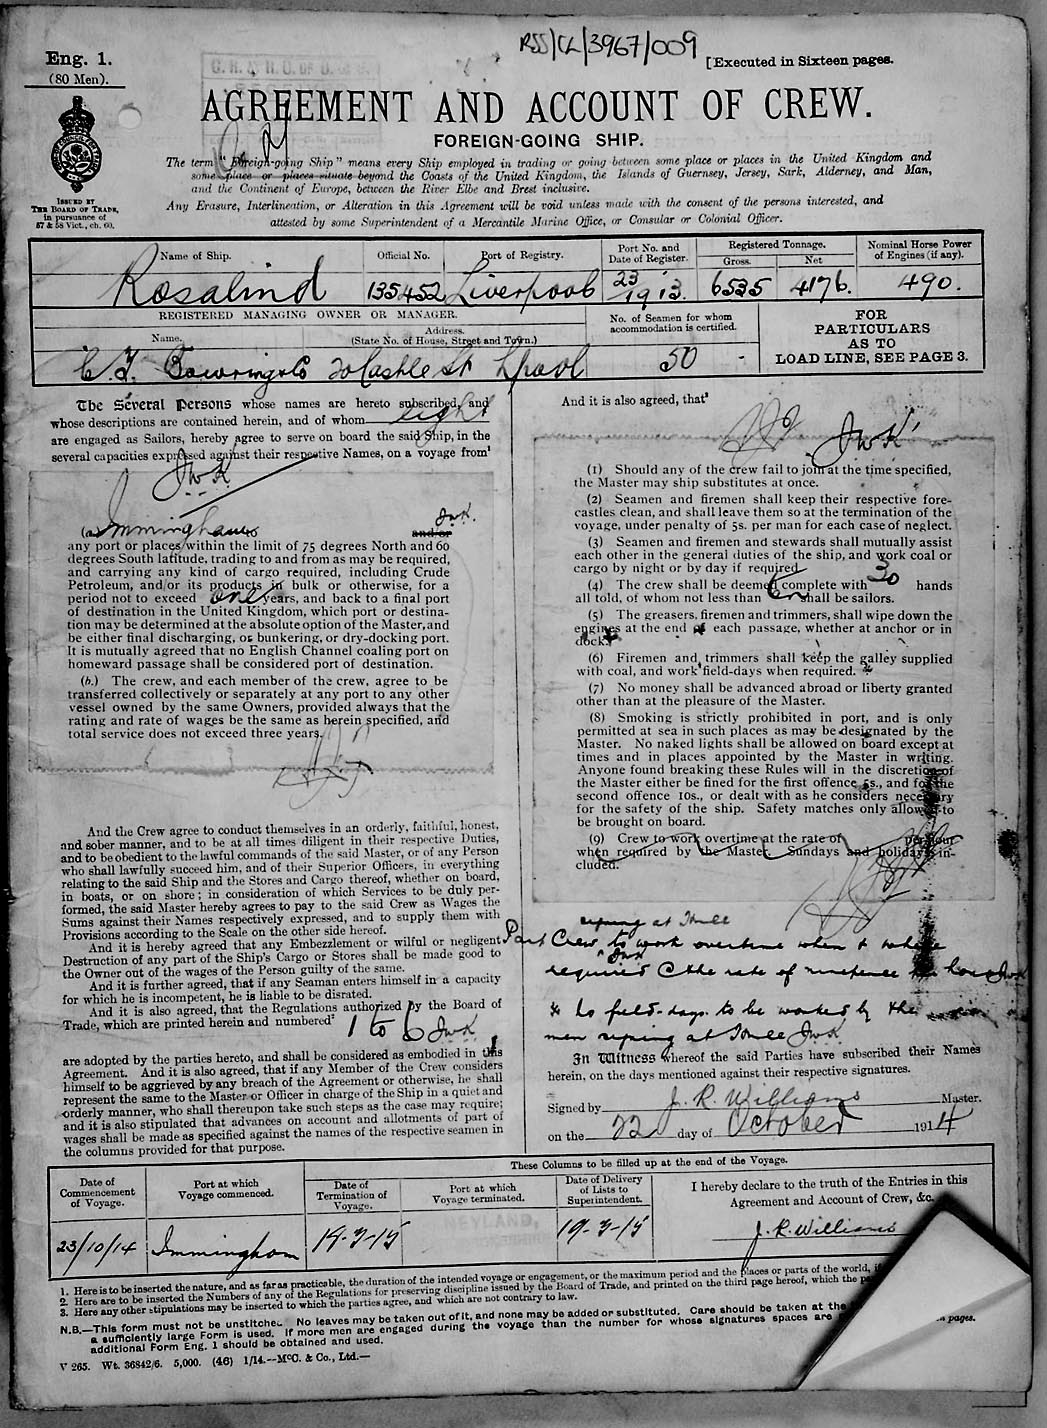 RSS/CL/3967/009
Eng. 1.
(80 Men).
[Executed in Sixteen pages.
AGREEMENT AND ACCOUNT OF CREW.
FOREIGN-GOING SHIP.
The term "Foreign-going Ship" means every Ship employed in trading or going between some place or places in the United Kingdom and
some place or places situate beyond the Coasts of the United Kingdom, the Islands of Guernsey, Jersey, Sark, Alderney, and Man,
and the Continent of Europe, between the River Elbe and Brest inclusive.
Any Erasure, Interlineation, or Alteration in this Agreement will be void unless made with the consent of the persons interested, and
attested by some Superintendent of a Mercantile Marine Office, or Consular or Colonial Officer.
ISSUED BY
THE BOARD OF TRADE,
in pursuance of
57 & 58 Vict., ch. 60.
Name of Ship. Official No. Port of Registry. Port No. and Date of Register. Registered Tonnage. Gross. Net Nominal Horse Power of Engines (if any).
Rosalind 135452 Liverpool 23/1913. 6535 4176. 490.
REGISTERED MANAGING OWNER OR MANAGER.
Name. Address.
(State No. of House, Street and Town.)
No. of Seamen for whom accommodation is certified.
C. T. Bowring & Co 20 Castle St Lpool 50 -
FOR
PARTICULARS
AS TO
LOAD LINE, SEE PAGE 3.
The Several Persons whose names are hereto subscribed, and
whose descriptions are contained herein, and of whom eight
are engaged as Sailors, hereby agree to serve on board the said Ship, in the
several capacities expressed against their respective Names, on a voyage from¹
JWK
JWK.
(a) Immingham and/or
any port or places within the limit of 75 degrees North and 60
degrees South latitude, trading to and from as may be required,
and carrying any kind of cargo required, including Crude
Petroleum, and/or its products in bulk or otherwise, for a
period not to exceed one years, and back to a final port
of destination in the United Kingdom, which port or destina-
tion may be determined at the absolute option of the Master, and
be either final discharging, or bunkering, or dry-docking port.
It is mutually agreed that no English Channel coaling port on
homeward passage shall be considered port of destination.
(b.) The crew, and each member of the crew, agree to be
transferred collectively or separately at any port to any other
vessel owned by the same Owners, provided always that the
rating and rate of wages be the same as herein specified, and
total service does not exceed three years.
And the Crew agree to conduct themselves in an orderly, faithful, honest,
and sober manner, and to be at all times diligent in their respective Duties,
and to be obedient to the lawful commands of the said Master, or of any Person
who shall lawfully succeed him, and of their Superior Officers, in everything
relating to the said Ship and the Stores and Cargo thereof, whether on board,
in boats, or on shore; in consideration of which Services to be duly per-
formed, the said Master hereby agrees to pay to the said Crew as Wages the
Sums against their Names respectively expressed, and to supply them with
Provisions according to the Scale on the other side hereof.
And it is hereby agreed that any Embezzlement or wilful or negligent
Destruction of any part of the Ship's Cargo or Stores shall be made good to
the Owner out of the wages of the Person guilty of the same.
And it is further agreed, that if any Seaman enters himself in a capacity
for which he is incompetent, he is liable to be disrated.
And it is also agreed, that the Regulations authorized by the Board of
Trade, which are printed herein and numbered² 1 to 6 JWK
are adopted by the parties hereto, and shall be considered as embodied in this
Agreement. And it is also agreed, that if any Member of the Crew considers
himself to be aggrieved by any breach of the Agreement or otherwise, he shall
represent the same to the Master or Officer in charge of the Ship in a quiet and
orderly manner, who shall thereupon take such steps as the case may require;
and it is also stipulated that advances on account and allotments of part of
wages shall be made as specified against the names of the respective seamen in
the columns provided for that purpose.
And it is also agreed, that³
JWK
(1) Should any of the crew fail to join at the time specified,
the Master may ship substitutes at once.
(2) Seamen and firemen shall keep their respective fore-
castles clean, and shall leave them so at the termination of the
voyage, under penalty of 5s. per man for each case of neglect.
(3) Seamen and firemen and stewards shall mutually assist
each other in the general duties of the ship, and work coal or
cargo by night or by day if required.
(4) The crew shall be deemed complete with 30 hands
all told, of whom not less than six shall be sailors.
(5) The greasers, firemen and trimmers, shall wipe down the
engines at the end of each passage, whether at anchor or in
dock.
(6) Firemen and trimmers shall keep the galley supplied
with coal, and work field-days when required.
(7) No money shall be advanced abroad or liberty granted
other than at the pleasure of the Master.
(8) Smoking is strictly prohibited in port, and is only
permitted at sea in such places as may be designated by the
Master. No naked lights shall be allowed on board except at
times and in places appointed by the Master in writing.
Anyone found breaking these Rules will in the discretion of
the Master either be fined for the first offence 5s., and for the
second offence 10s., or dealt with as he considers necessary
for the safety of the ship. Safety matches only allowed to
be brought on board.
(9) Crew to work overtime at the rate of per hour
when required by the Master. Sundays and holidays in-
cluded.
signing at Hull
Part Crew to work overtime when & where
JWK
required @ the rate of ninepence per hour JWK
& no field-days to be worked by the
men signing at Hull JWK
In Witness whereof the said Parties have subscribed their Names
herein, on the days mentioned against their respective signatures.
Signed by J. R. Williams Master.
on the 22 day of October 1914
These Columns to be filled up at the end of the Voyage.
Date of Commencement of Voyage. Port at which Voyage commenced. Date of Termination of Voyage. Port at which Voyage terminated. Date of Delivery of Lists to Superintendent. I hereby declare to the truth of the Entries in this
Agreement and Account of Crew, &c.
NEYLAND,
23/10/14 Immingham 19-3-15 19-3-15 J. R. Williams
1. Here is to be inserted the nature, and as far as practicable, the duration of the intended voyage or engagement, or the maximum period and the places or parts of the world,
2. Here are to be inserted the Numbers of any of the Regulations for preserving discipline issued by the Board of Trade, and printed on the third page hereof, which the
3. Here any other stipulations may be inserted to which the parties agree, and which are not contrary to law.
N.B.—This form must not be unstitched. No leaves may be taken out of it, and none may be added or substituted. Care should be taken at the
a sufficiently large Form is used. If more men are engaged during the voyage than the number for whose signatures spaces are pages.
additional Form Eng. 1 should be obtained and used.
V 265. Wt. 36842/6. 5,000. (46) 1/14.--McC. & Co., Ltd.—